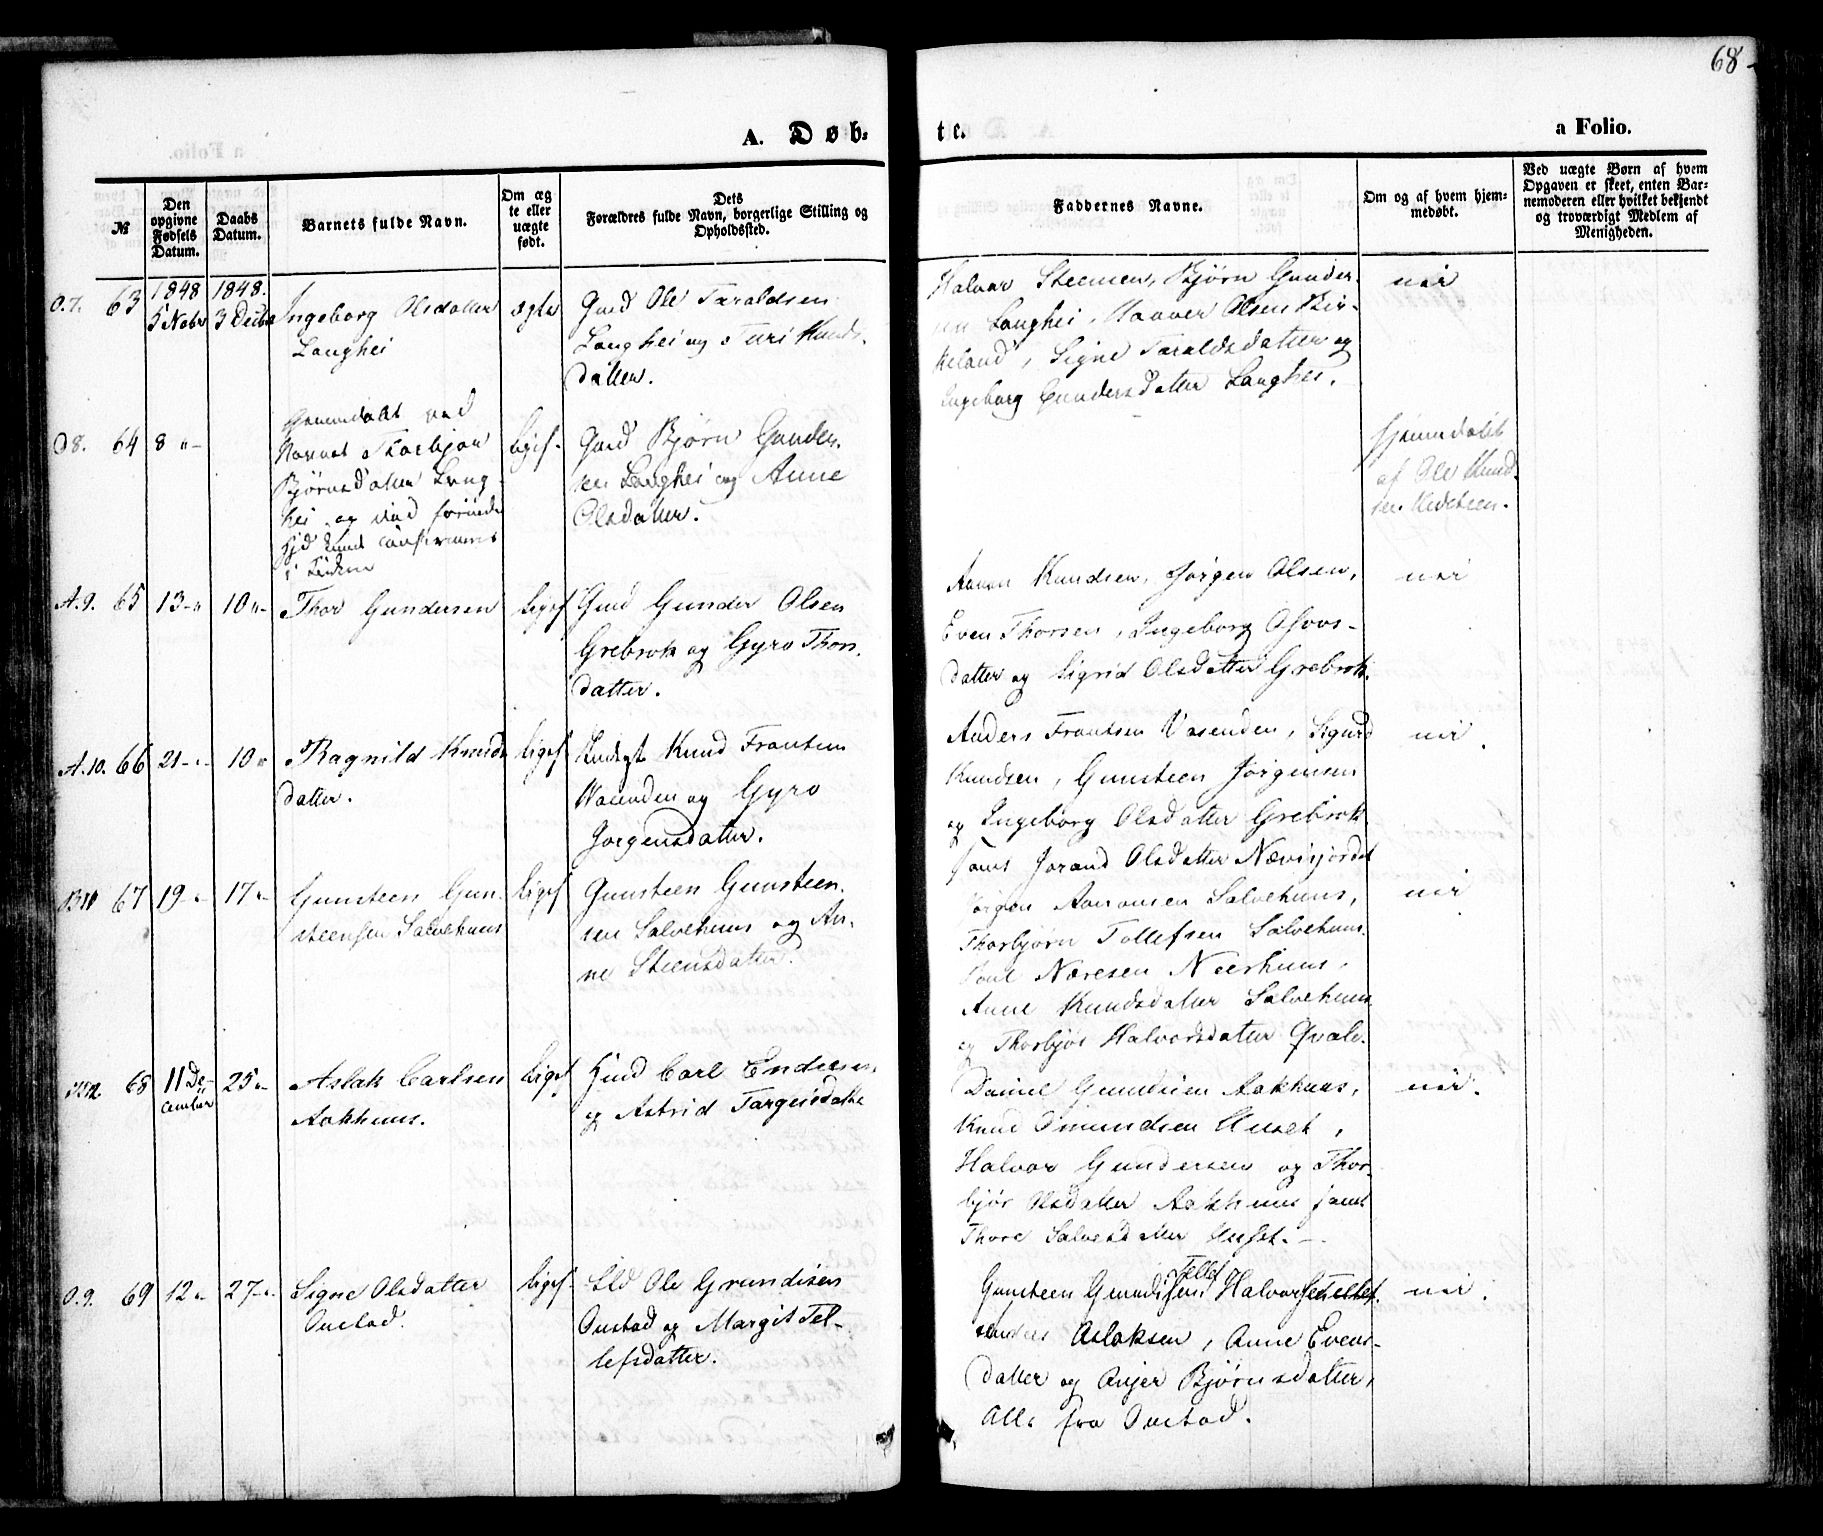 68
A. Døb-
te.
a Folio.
№
Den opgivne Fødsels Datum.
Daabs Datum.
Barnets fulde Navn.
Om ægte eller uægte født.
Dets Forældres fulde Navn, borgerlige Stilling og Opholdssted.
Faddernes Navne.
Om og af hvem hjemmedøbt.
Ved uægte Børn af hvem Opgaven er skeet, enten Barnemoderen eller hvilket bekjendt og troværdigt Medlem af Menigheden.
O.7. 63
1848 5 Nobr
1848. 3 Decbr
Ingeborg Olsdatter
Langhei
ægte
Gmd Ole Taraldsen
Langhei og Turi Knuds-
datter.
Halvor Steensen, Bjørn Gunder-
sen Langhei, Aanver Olsen Bir-
keland, Signe Taraldsdatter og
Ingeborg Gundersdatter Langhei.
nei
O8. 64
8 "-
Hjemmdøbt ved
Navnet Thorbjør
Bjørnsdatter Lang-
hei og død forinden
i Kirken
liges.
Gmd Bjørn Gunder-
sen Langhei og Anne
Olsdatter.
hjemmdøbt
af Ole Knud-
sen
A.9. 65
13-"
10 "-
Thor Gundersen
liges
Gmd Gunder Olsen
Grebrok og Gyro Thors-
datter.
Aanon Knudsen, Jørgen Olsen,
Even Thorsen, Ingeborg
datter og Sigrid Olsdatter Grebrok.
nei
A.10. 66
21-"
10 "
Ragnild Knuds-
datter.
ligesf
Indgt Knud Frantsen
Vasenden og Gyro
Jørgensdatter.
Anders Frantsen Vasenden, Sigurd
Knudsen, Gunsteen Jørgensen
og Ingeborg Olsdatter Grebrok
samt Jorand Olsdatter
nei.
B11 67
19 -"
17 "-
Gunsteen Gun-
steensen Salvehuus
ligesf
Gunsteen Gunsteen-
sen Salvehuus og An-
ne Steensdatter.
Jørgen Aanonsen Salvehuus,
Thorbjørn Tollefsen Salvehuus
Neerhuus,
Anne Knudsdatter Salvehuus
og Thorbjør Halvorsdatter Qvale.
nei
68
11 De-
cember
25 "-
Aslak Carlsen
Aakhuus.
ligesf
Carl Endresen
og Astrid Targeisdatter
Daniel Gundersen Aakhuus,
Knud Omundsen Huset,
Halvor Gundersen og Thor-
bjør Olsdatter Aakhuus samt
Thore Salvesdatter Huset.-
nei.
O.9. 69
12 "
27-"
Signe Olsdatter
Oustad.
ligesf.
Ole Grundesen
Oustad og Margit Tel-
lefsdatter.
Tellef
Gunsteen Halvorsen
Aslaksen, Anne Evens-
datter og Anjer Bjørnsdatter,
Alle fra Oustad.
nei.